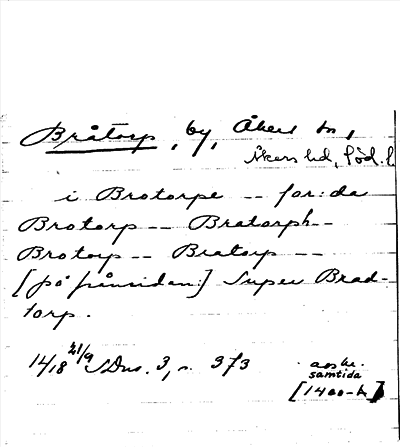 Bråtorp, by, Åkers sn,
Åkers hd, Söd. l
i Brotorpe -- for:da
Brotorp -- Bratorph --
Brotorp -- Bratorp --
[på frånsidan:] Super Brad-
torp.
14/18 21/9 SDns. 3, s. 373 avskr.
samtida
[1400-t]